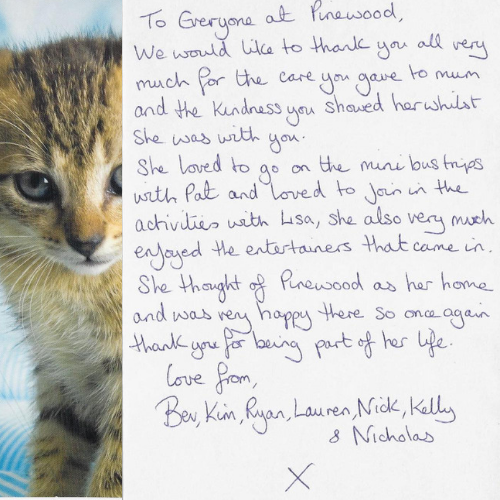 To Everyone at Pinewood,
We would like to thank you all very
much for the care you gave to mum
and the kindness you showed her whilst
she was with you.
She loved to go on the mini bus trips
with Pat and loved to join in the
activities with Lisa, she also very much
enjoyed the entertainers that came in.
She thought of Pinewood as her home
and was very happy there so once again
thank you for being part of her life.
Love from,
Bev, Kim, Ryan, Lauren, Nick, Kelly
& Nicholas
X